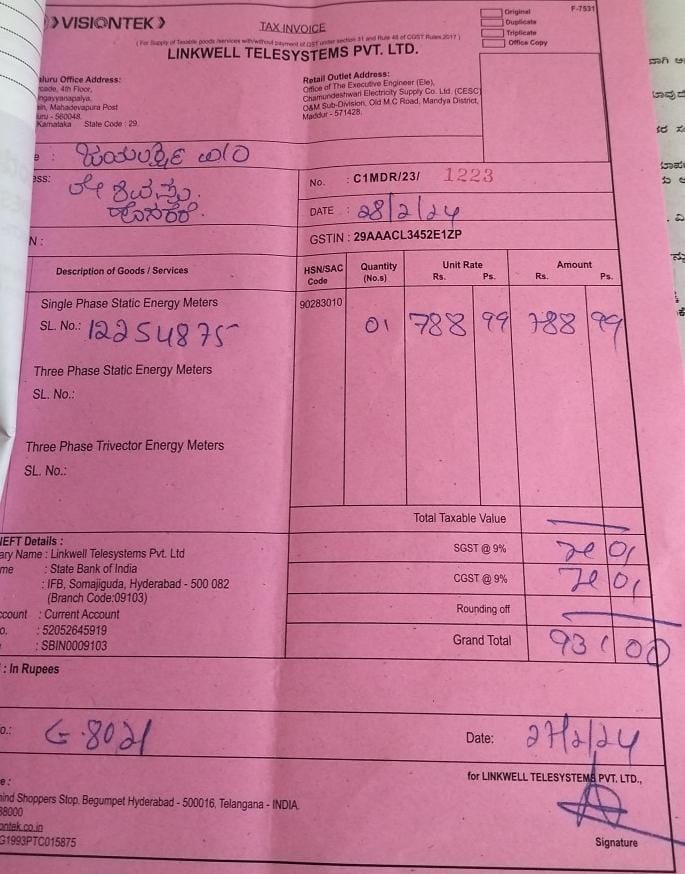 VISIONTEK
TAX INVOICE
( For Supply of Taxable goods /services with/without payment of GST under section 31 and Rule 46 of CGST Rules 2017 )
LINKWELL TELESYSTEMS PVT. LTD.
Original
Duplicate
Triplicate
Office Copy
F-7531
aluru Office Address:
cade, 4th Floor,
ngayyanapalya,
ain, Mahadevapura Post
uru - 560048.
Karnataka State Code : 29
Retail Outlet Address:
Office of The Executive Engineer (Ele),
Chamundeshwari Electricity Supply Co. Ltd. (CESC)
O&M Sub-Division, Old M.C Road, Mandya District,
Maddur - 571428.
e :
ess:
ಹೊಸಕೆರೆ.
No. : C1MDR/23/ 1223
DATE : 28/2/24
N :
GSTIN : 29AAACL3452E1ZP
Description of Goods / Services
HSN/SAC Code
Quantity (No.s)
Unit Rate Rs. Ps.
Amount Rs. Ps.
Single Phase Static Energy Meters 90283010
SL. No.: 12254875 01 788 99 788 99
Three Phase Static Energy Meters
SL. No.:
Three Phase Trivector Energy Meters
SL. No.:
Total Taxable Value
SGST @ 9% 01
CGST @ 9% 01
Rounding off
Grand Total 931 00
NEFT Details :
ary Name : Linkwell Telesystems Pvt. Ltd
me : State Bank of India
: IFB, Somajiguda, Hyderabad - 500 082
(Branch Code:09103)
ccount : Current Account
o. : 52052645919
: SBIN0009103
: In Rupees
o.: G-8021
Date: 27/2/24
for LINKWELL TELESYSTEMS PVT. LTD.,
e :
hind Shoppers Stop, Begumpet Hyderabad - 500016, Telangana - INDIA.
38000
ontek.co.in
G1993PTC015875
Signature